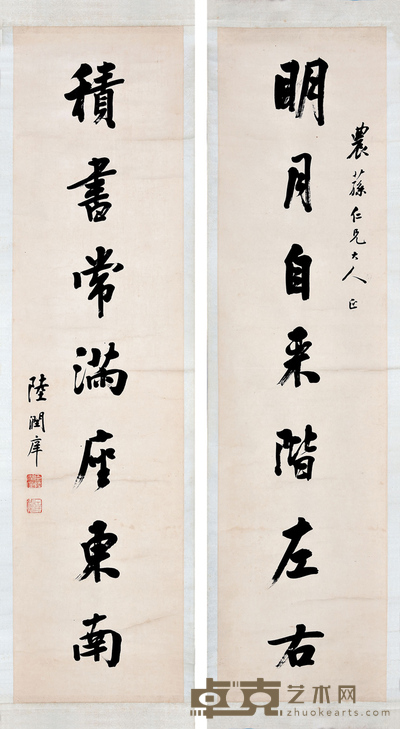 農蓀仁兄大人正
明月自来階左右
積書常滿座東南
陸潤庠
卓克艺术网
www.zhuokearts.com